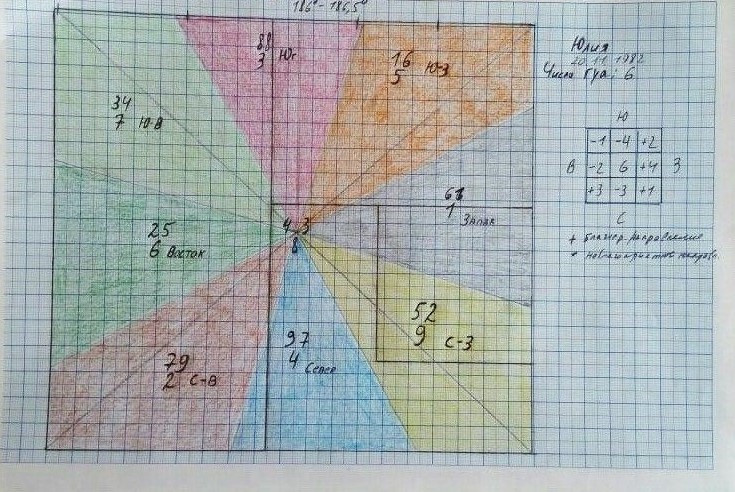 186° - 186,5°
88
3 Юг
16
5 Ю-З
34
7 Ю-В
61
1 Запад
25
6 Восток
4 3
8
52
9 С-З
97
4 Север
79
2 С-В
Юлия
20.11.1982
Число гуа: 6
Ю
-1 -4 +2
В -2 6 +4 З
+3 -3 +1
С